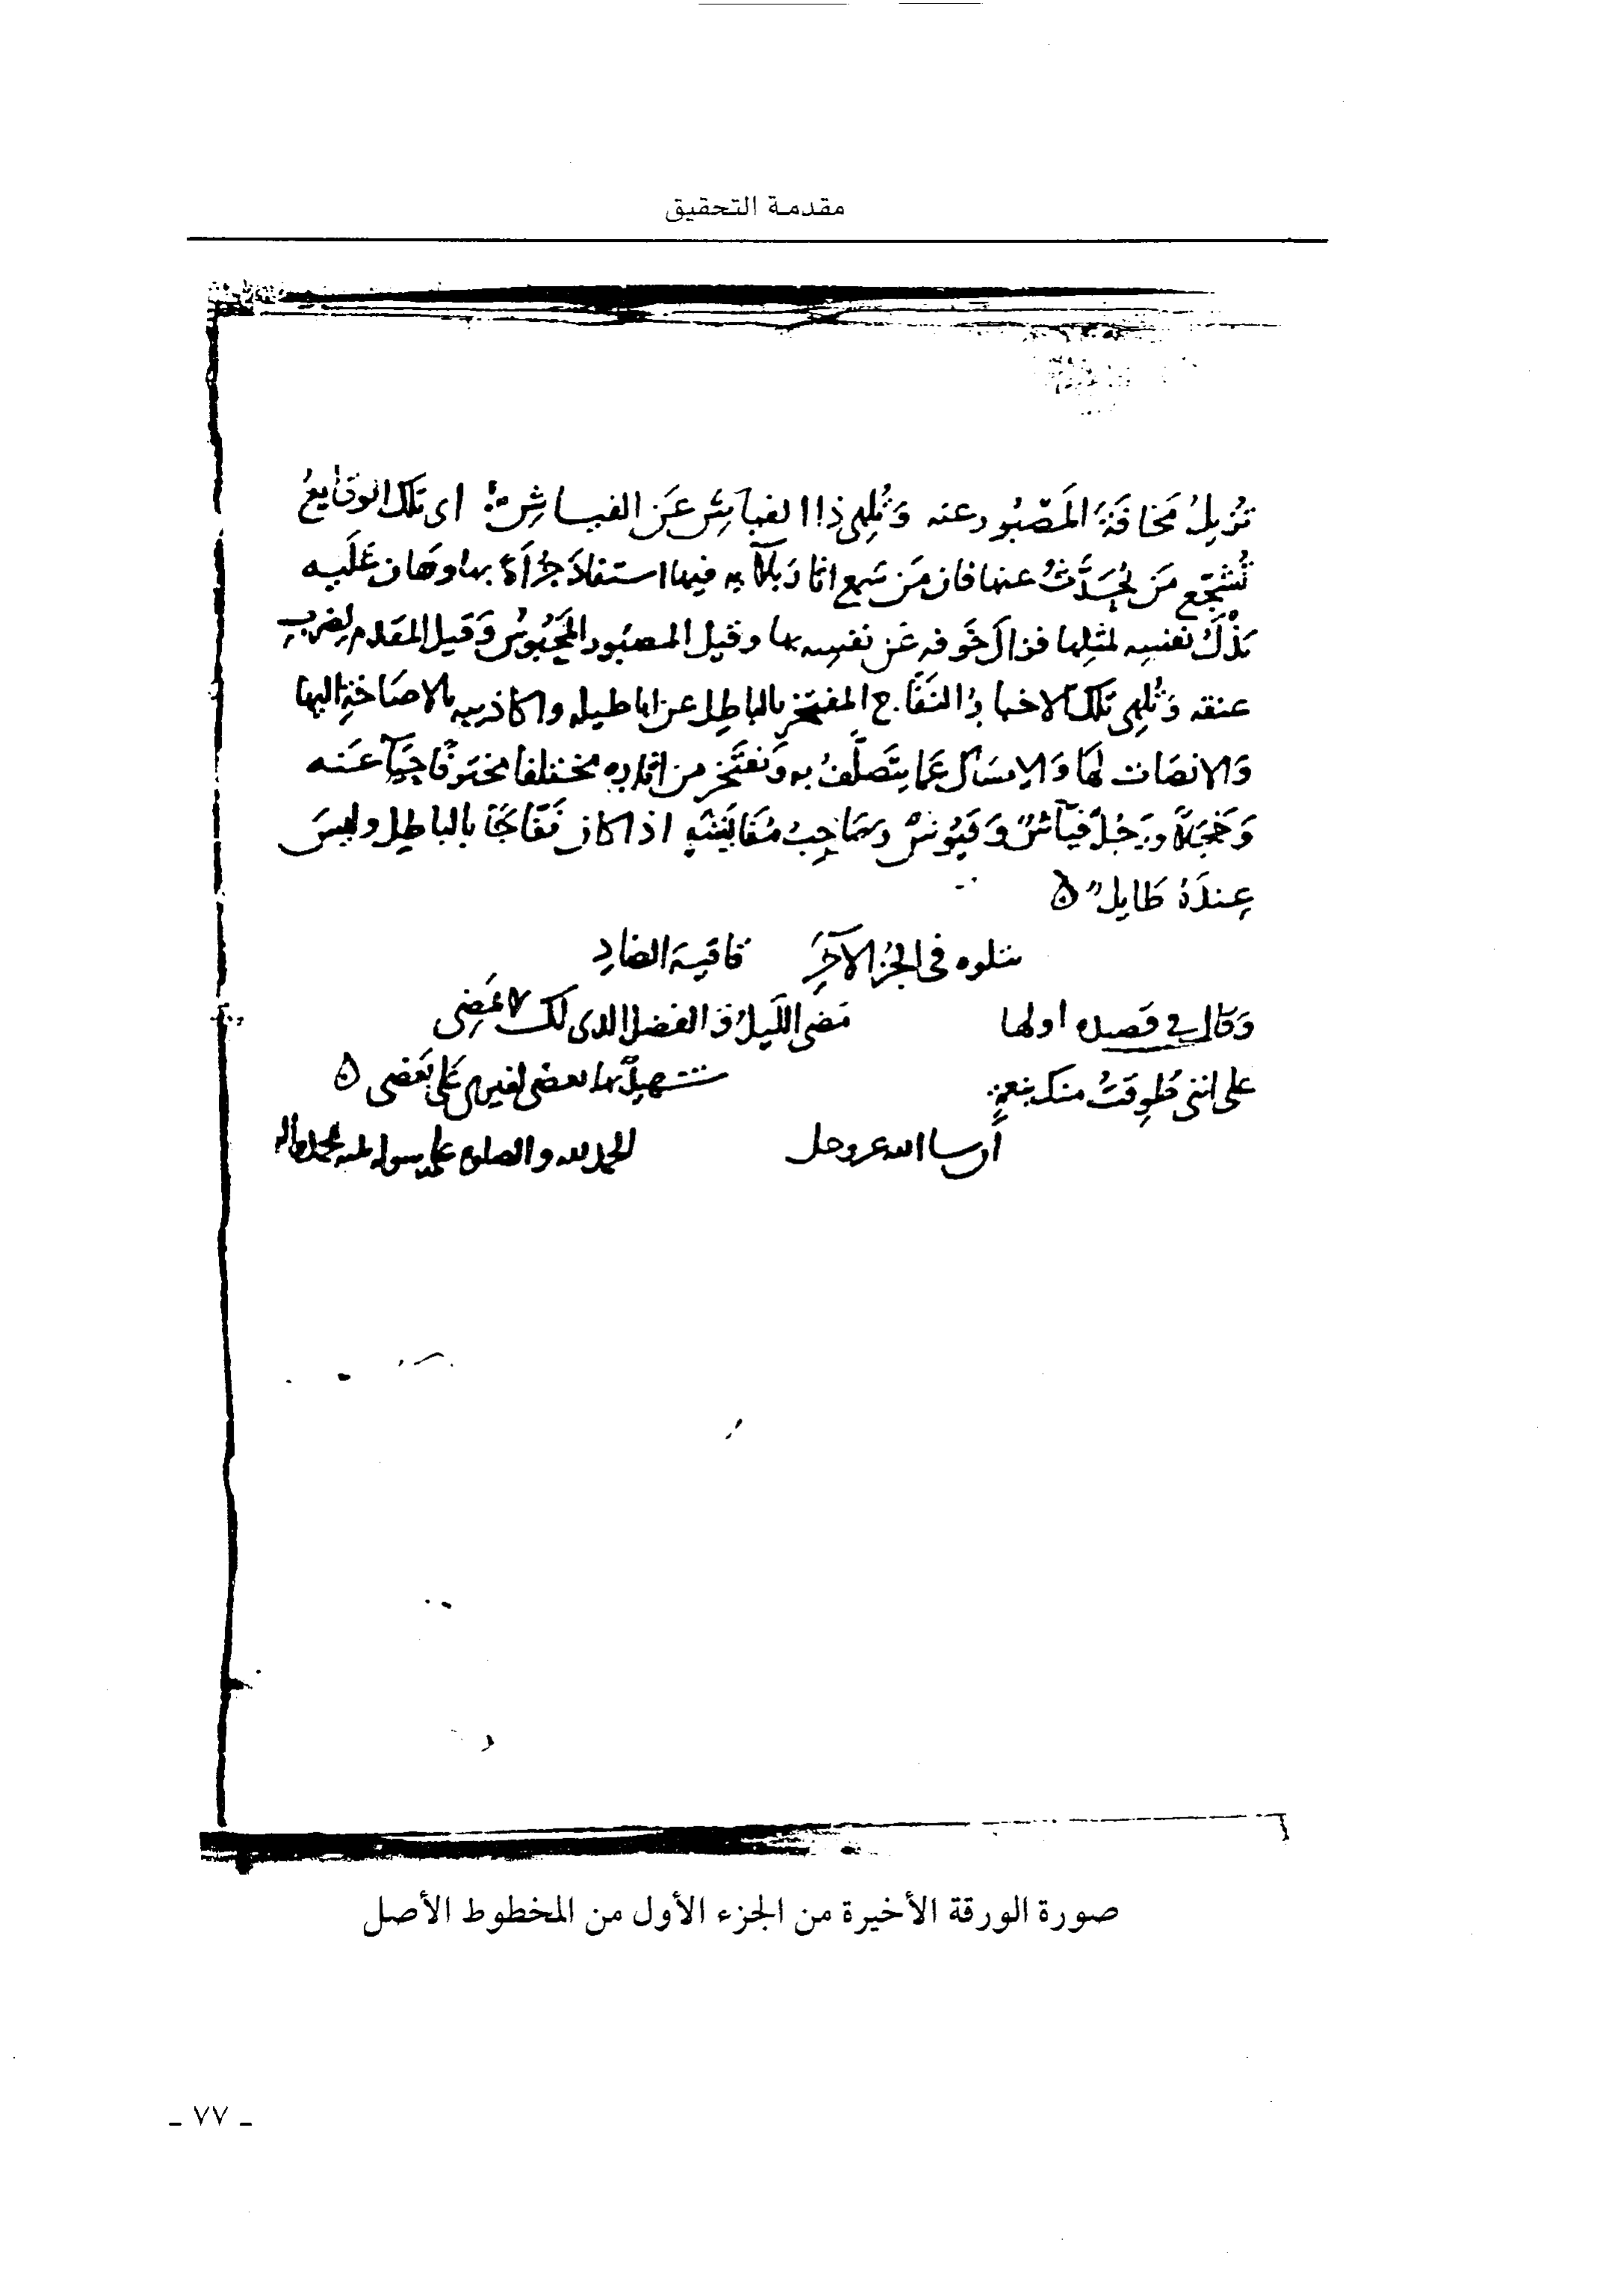 مقدمة التحقيق
تُزِيلُ مَخافَةَ المَصْبُورِ عنه وَتُلهِي ذا الفِياشِ عَنِ الفِياشِ اى تلك الوقايعُ
تُشَجِّع مَن يُحَدَّثُ عنها فان مَن سَمِع اثار بلآيه فيها استفادَ جُرْأَةً بها وهان عَلَيه
بَذْلُ نفسِه لمثلِها فزال خَوفه عَن نفسِه بها وقيل المصبُور المحبُوسُ وَقيل المقدم لِضَربِ
عنقه وَتُلهِى تلك الاخبار ذا النَفَّاج المفتخر بالباطِل عن اباطيله واكاذيبه بالاصَاخَةِ اليها
وَالانصَات لها وَالامساك عَما يتَصَلَّفُ به وَيفتخر من اكاذيبه مختلفا مخترقا حَيَآءً عَنه
وَخَجَلاً ورَجُلٌ فَيّاشٌ وَفَيُوشٌ وصَاحِبُ مُفَايَشَةٍ اذا كان نَفّاجًا بالباطِل وليسَ
عِندَهُ طَايِلٌ ه
يتلوه فى الجُزءِ الآخَرِ قافية الضادِ
وَقال فى قصيدة اولها مَضَى اللَّيلُ وَالفضلُ الذى لك لا يَمضِى
على اننى طُوِّقتُ منك بنعمةٍ شهِيدٌ بها بعضى لغيرى عَلى بَعضى ه
ان شا الله عز وجل الحمد لله والصلوة على رسوله محمد واله
صورة الورقة الأخيرة من الجزء الأول من المخطوط الأصل
ـ ٧٧ ـ